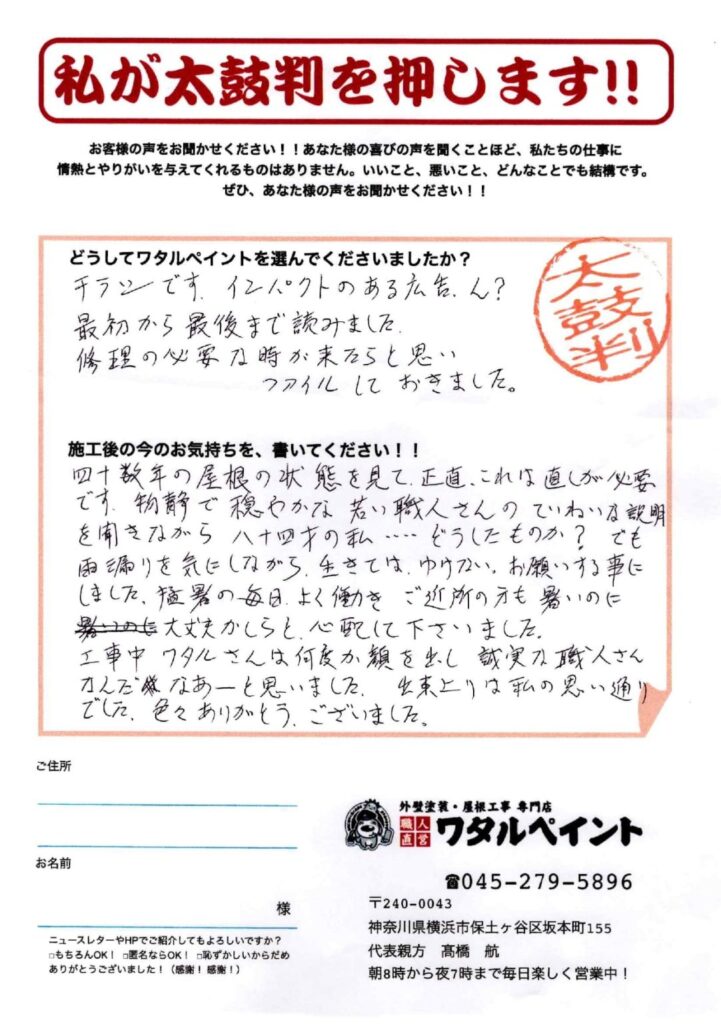 私が太鼓判を押します!!
お客様の声をお聞かせください！！あなた様の喜びの声を聞くことほど、私たちの仕事に
情熱とやりがいを与えてくれるものはありません。いいこと、悪いこと、どんなことでも結構です。
ぜひ、あなた様の声をお聞かせください！！
どうしてワタルペイントを選んでくださいましたか？
太鼓判
チラシです. インパクトのある広告、ん？
最初から最後まで読みました.
修理の必要な時が来たらと思い
ファイルしておきました。
施工後の今のお気持ちを、書いてください！！
四十数年の屋根の状態を見て、正直、これは直しが必要
です. 物静で穏やかな若い職人さんのていねいな説明
を聞きながら 八十四才の私‥‥どうしたものか？ でも
雨漏りを気にしながら、生きては、ゆけない。お願いする事に
しました、猛暑の毎日、よく働き ご近所の方も暑いのに
暑いのに大丈夫かしらと、心配して下さいました。
工事中 ワタルさんは何度か顔を出し 誠実な職人さん
なんだなあーと思いました. 出来上りは私の思い通り
でした、色々ありがとう、ございました。
ご住所
お名前
様
外壁塗装・屋根工事 専門店
職人直営 ワタルペイント
☎045-279-5896
〒240-0043
神奈川県横浜市保土ヶ谷区坂本町155
代表親方　髙橋　航
朝8時から夜7時まで毎日楽しく営業中！
ニュースレターやHPでご紹介してもよろしいですか？
□もちろんOK！ □匿名ならOK！ □恥ずかしいからだめ
ありがとうございました！（感謝！感謝！）